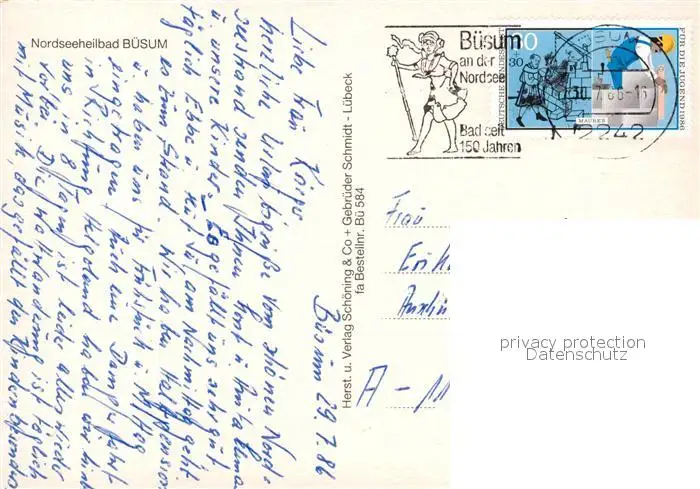 Nordseeheilbad BÜSUM
Büsum
an der
Nordsee
Bad seit
150 Jahren
2242
DEUTSCHE BUNDESPOST
30
FÜR DIE JUGEND 1986
MAURER
Herst. u. Verlag Schöning & Co + Gebrüder Schmidt - Lübeck
fa Bestellnr. Bü 584
Büsum 29.7.86
Liebe Frau
herzliche Urlaubsgrüße vom schönen Nord-
senden Ihnen Horst u.
u. unsere Kinder. Es gefällt uns sehr gut
täglich Ebbe u. Flut, am Nachmittag geht
es zum Strand. Wir haben Halbpension
u. haben uns für Frühstück u. Mittag
eingetragen. Auch eine Dampferfahrt
in Richtung Helgoland haben wir
uns, in 8 Tagen ist leider alles wieder
vorbei. Die Wattwanderung ist täglich
mit Musik, das gefällt den Kindern
Frau
A-11
privacy protection
Datenschutz